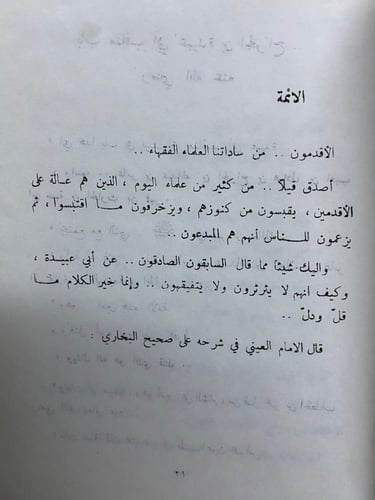 الائمة
الأقدمون .. من ساداتنا العلماء الفقهاء ..
أصدق قيلاً .. من كثير من علماء اليوم ، الذين هم عالة على
الأقدمين ، يقبسون من كنوزهم ، ويزخرفون مـا اقتبسوا ، ثم
يزعمون للـناس أنهم هم المبدعون ..
واليك شيئاً مما قال السابقون الصادقون .. عن أبي عبيدة ،
وكيف انهم لا يثرثرون ولا يتفيقهون .. وإنما خير الكلام مـا
قلّ ودلّ ..
قال الامام العيني في شرحه على صحيح البخاري :